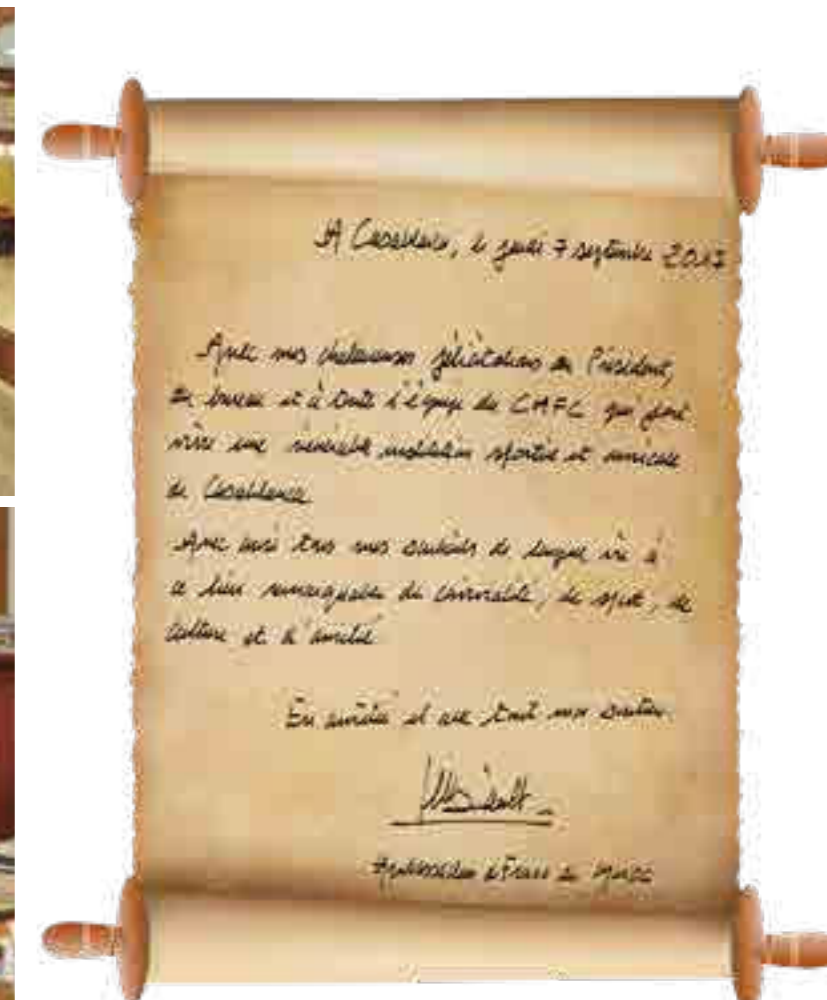 A Casablanca, le jeudi 7 septembre 2017
Avec mes chaleureuses félicitations au Président,
au bureau et à toute l'équipe du CMFC qui font
vivre une vénérable institution sportive et amicale
de Casablanca
Avec aussi tous mes souhaits de longue vie à
ce lieu remarquable de convivialité, de sport, de
culture et d'amitié
En amitié et avec tout mon soutien.
Ambassadeur de France au Maroc